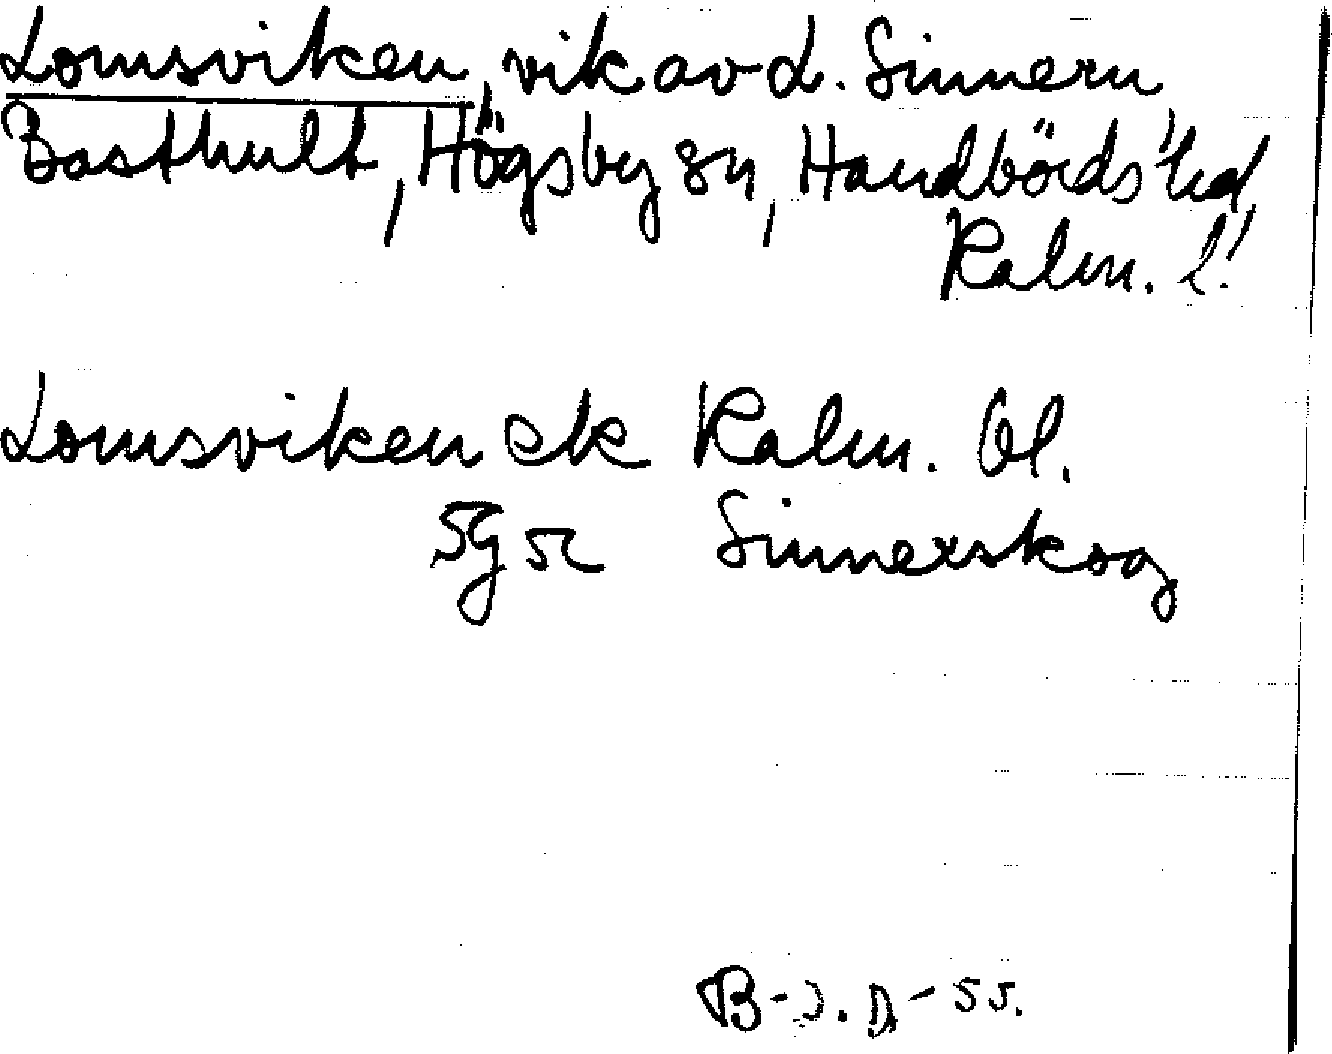 Lomsviken, vik av L. Sinnern,
Basthult, Högsby sn, Handbörds hd,
Kalm. l.
Lomsviken ek Kalm. öl.
5g 52 Sinnerskog
B-J. D-55.